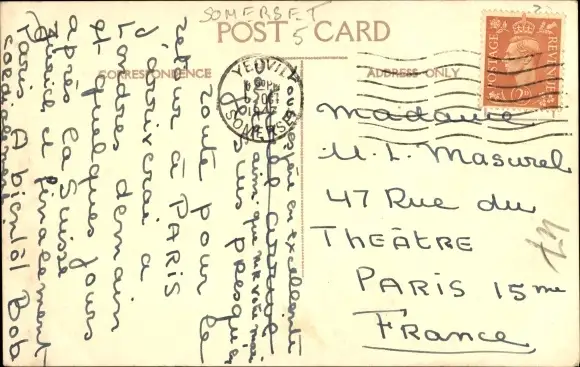 SOMERSET
POST CARD
5
CORRESPONDENCE
ADDRESS ONLY
POSTAGE
REVENUE
YEOVIL
SOMERSET
en excellente
ainsi que
presque
route pour le
retour à PARIS
J'arriverai à
Londres demain
et quelques jours
après la Suisse
et finalement
Paris A bientôt Bob
Madame
M. L. Masurel
47 Rue du
THEÂTRE
PARIS 15me
France